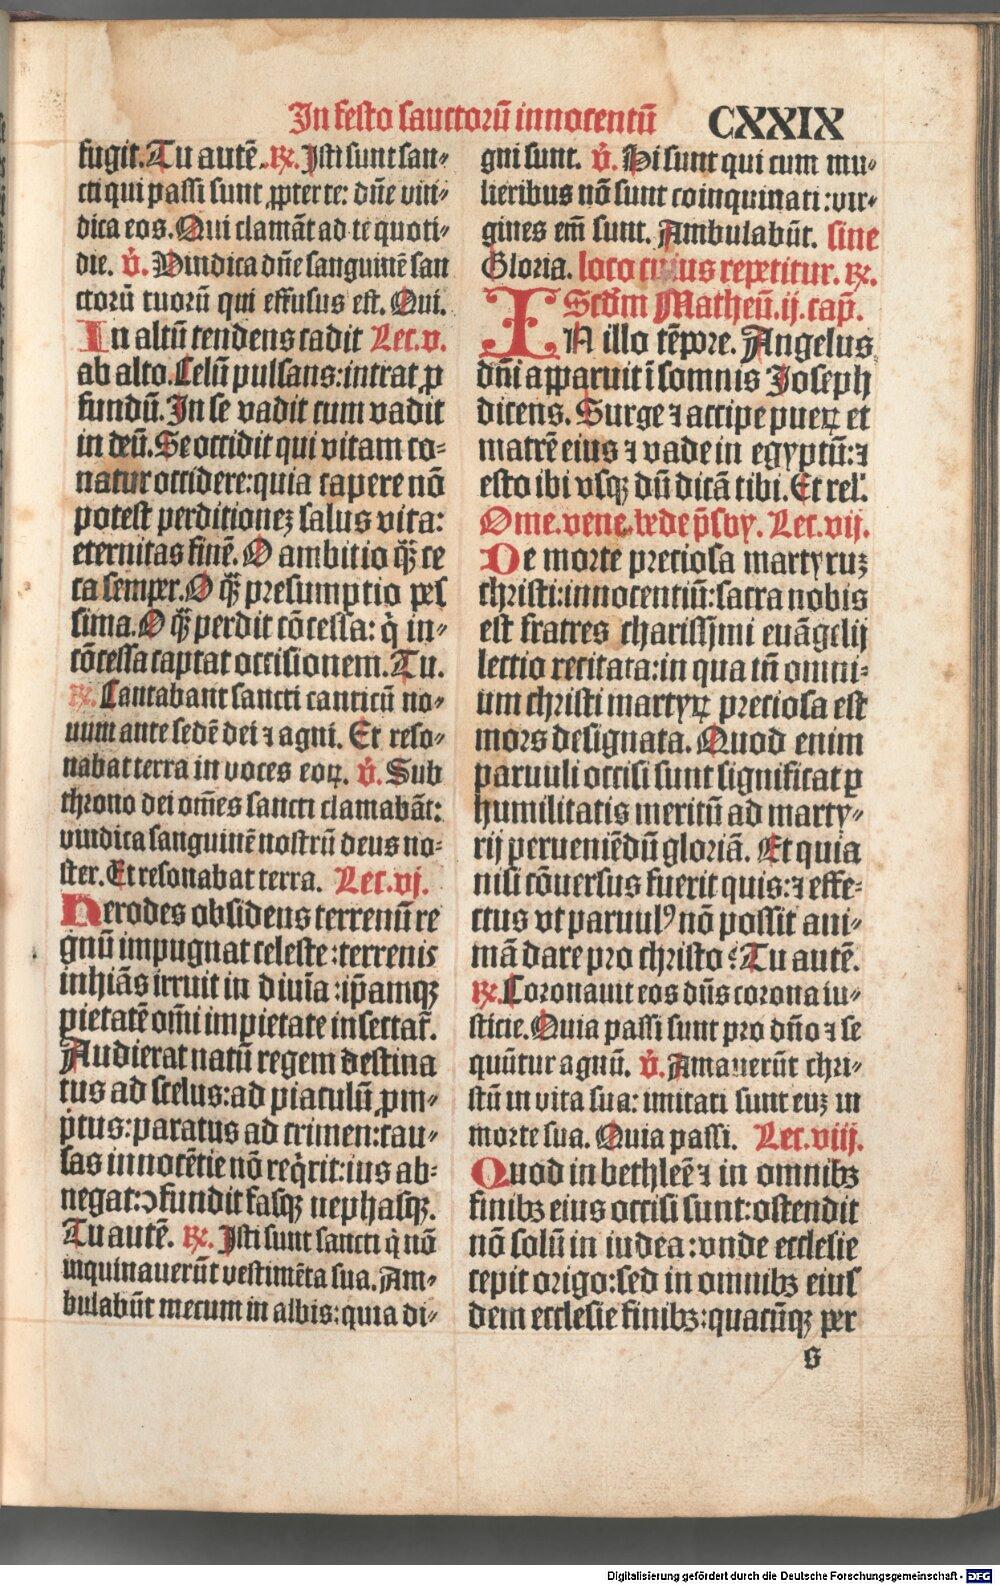 In festo sanctorū innocentū CXXIX
fugit. Tu autē. ℟. Isti sunt san⸗
cti qui passi sunt ꝓpter te: dn̄e vin⸗
dica eos. Qui clamāt ad te quoti⸗
die. ℣. Vindica dn̄e sanguinē san
ctorū tuorū qui effusus est. Qui.
In altū tendens cadit Lec.v.
ab alto. Celū pulsans: intrat ꝓ
fundū. In se vadit cum vadit
in deū. Se occidit qui vitam co⸗
natur occidere: quia capere nō
potest perditionez salus vita:
eternitas finē. O ambitio q̄ꝫ ce
ca semper. O q̄ꝫ presumptio pes
sima. O q̄ꝫ perdit cōcessa: q̇ in⸗
cōcessa captat occisionem. Tu.
℟. Cantabant sancti canticū no⸗
uum ante sedē dei ⁊ agni. Et reso⸗
nabat terra in voces eoꝝ. ℣. Sub
throno dei om̄es sancti clamabāt:
vindica sanguinē nostrū deus no⸗
ster. Et resonabat terra. Lec.vj.
Herodes obsidens terrenū re
gnū impugnat celeste: terrenis
inhiās irruit in diuīa: ip̄amqꝫ
pietatē om̄i impietate insectat᷑.
Audierat natū regem destina
tus ad scelus: ad piaculū ꝓm⸗
ptus: paratus ad crimen: cau⸗
sas innocētie nō req̇rit: ius ab⸗
negat: ꝯfundit fasqꝫ nephasqꝫ.
Tu autē. ℟. Isti sunt sancti q̇ nō
inquinauerūt vestimēta sua. Am⸗
bulabūt mecum in albis: quia di⸗
gni sunt. ℣. Hi sunt qui cum mu⸗
lieribus nō sunt coinquinati: vir⸗
gines em̄ sunt. Ambulabūt. sine
Gloria. loco cuius repetitur. ℟.
Scd̄m Matheū.ij.cap̄.
IN illo tēpore. Angelus
dn̄i apparuit ī somnis Joseph
dicens. Surge ⁊ accipe pueꝝ et
matrē eius ⁊ vade in egyptū: ⁊
esto ibi vsqꝫ dū dicā tibi. Et rel'.
Ome. vene. bede p̄sby. Lec.vij.
De morte preciosa martyruz
christi: innocentiū: sacra nobis
est fratres charissimi euāgelij
lectio recitata: in qua tn̄ omni⸗
um christi martyꝝ preciosa est
mors designata. Quod enim
paruuli occisi sunt significat ꝑ
humilitatis meritū ad marty⸗
rij perueniēdū gloriā. Et quia
nisi cōuersus fuerit quis: ⁊ effe⸗
ctus vt paruulꝰ nō possit ani⸗
mā dare pro christo? Tu autē.
℟. Coronauit eos dn̄s corona iu⸗
sticie. Quia passi sunt pro dn̄o ⁊ se
quūtur agnū. ℣. Amauerūt chri⸗
stū in vita sua: imitati sunt euz in
morte sua. Quia passi. Lec.viij.
Quod in bethleē ⁊ in omnibꝫ
finibꝫ eius occisi sunt: ostendit
nō solū in iudea: vnde ecclesie
cepit origo: sed in omnibꝫ eius
dem ecclesie finibꝫ: quacūqꝫ per
s
Digitalisierung gefördert durch die Deutsche Forschungsgemeinschaft - DFG